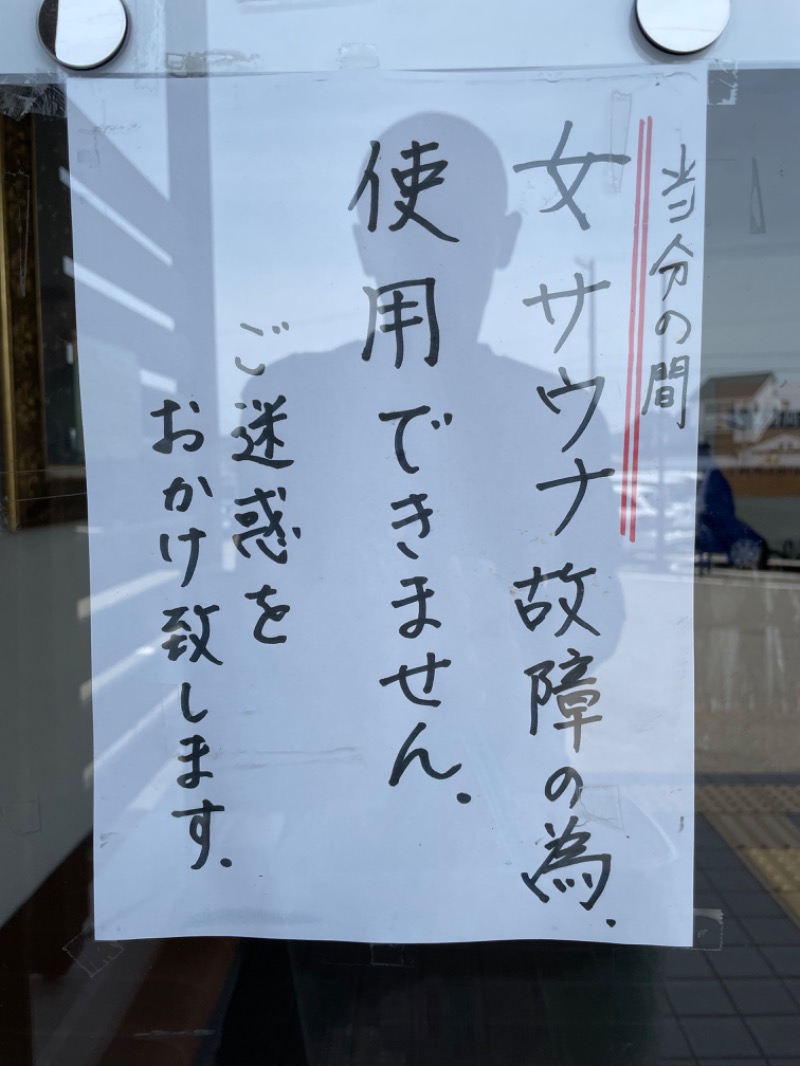 当分の間
女サウナ故障の為.
使用できません.
ご迷惑を
おかけ致します.